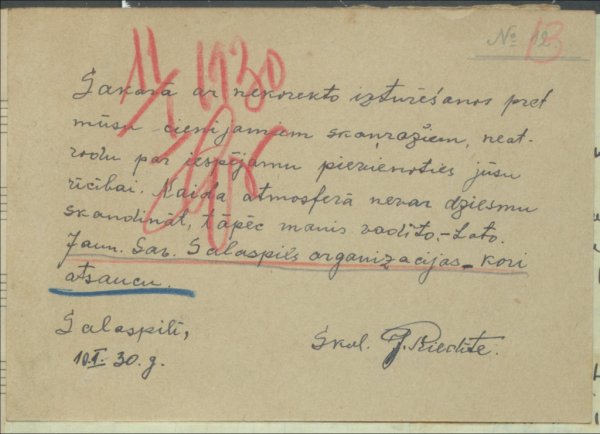 No 12. 13
11/I 1930
Sakarā ar nekorekto izturēšanos pret
mūsu cienijamiem skaņražiem, neat-
rodu par iespējamu pievienoties jūsu
rīcībai. Naida atmosferā nevar dziesmu
skandināt, tāpēc manis vadīto,- Latv.
Jaun. Sav. Salaspils organizācijas - kori
atsaucu.
Salaspilī,
10.I. 30. g.
Skol. J.